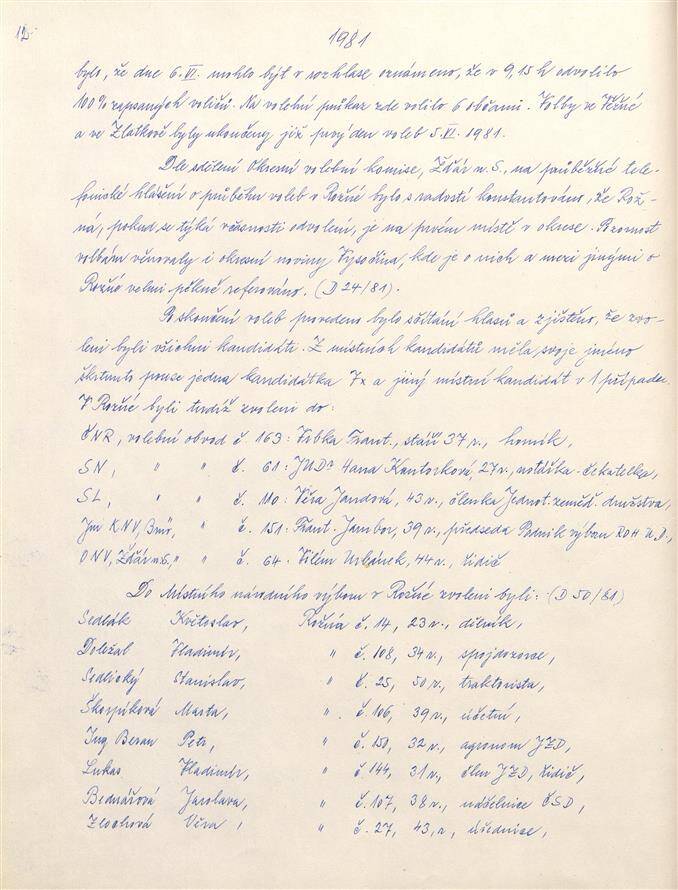 12.
1981
bylo, že dne 6. VI. mohlo být v rozhlase oznámeno, že v 9,15 h odvolilo
100% zapsaných voličů. Na volební průkaz zde volilo 6 občanů. Volby ve Věžné
a ve Zlatkově byly ukončeny již prvý den voleb 5. VI. 1981.
Dle sdělení Okresní volební komise, Žďár n. S., na průběžné tele-
fonické hlášení o průběhu voleb v Rožné bylo s radostí konstatováno, že Rož-
ná, pokud se týká včasnosti odvolení, je na prvém místě v okrese. Pozornost
volbám věnovaly i okresní noviny Vysočina, kde je o nich a mezi jinými o
Rožné velmi pěkně referováno. (D 24/81).
Po skončení voleb provedeno bylo sčítání hlasů a zjištěno, že zvo-
leni byli všichni kandidáti. Z místních kandidátů měla svoje jméno
škrtnuto pouze jedna kandidátka 7x a jiný místní kandidát v 1 případě.
V Rožné byli tudíž zvoleni do:
ČNR, volební obvod č. 163: Vrbka Frant., stáří 37 r., horník,
SN, " " č. 61: JUDr Hana Kantorková, 27 r., notářka-čekatelka,
SL, " " č. 110: Věra Jandová, 43 r., členka Jednot. zeměd. družstva,
Jm KNV, Brno, " č. 151: Frant. Jambor, 39 r., předseda Podnik výboru ROH U.D.,
ONV, Žďár n. S., " " č. 64: Vilém Urbánek, 44 r., řidič
Do Místního národního výboru v Rožné zvoleni byli: (D 50/81)
Sedlák Květoslav, Rožná č. 14, 23 r., dělník,
Doležal Vladimír, " č. 108, 34 r., spojdozorce,
Sedlický Stanislav, " č. 25, 50 r., traktorista,
Škorpíková Marta, " č. 106, 39 r., účetní,
Ing Beran Petr, " č. 150, 32 r., agronom JZD,
Lukas Vladimír, " č. 144, 31 r., člen JZD, řidič,
Bednářová Jaroslava, " č. 107, 38 r., ČSD,
Věra, " č. 27, 43, r, úřednice,